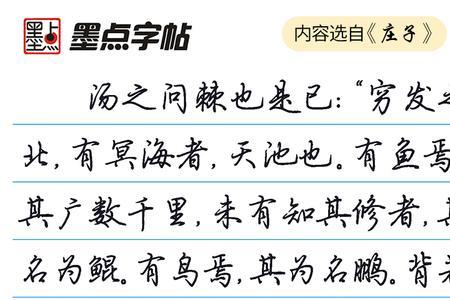 墨点
墨点字帖
内容选自《庄子》
汤之问棘也是已:“穷发
北,有冥海者,天池也。有鱼焉
其广数千里,未有知其修者,
名为鲲。有鸟焉,其为名鹏。背